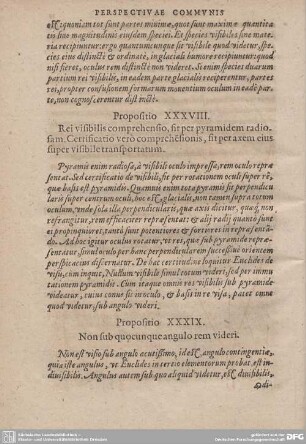 PERSPECTIVAE COMMVNIS
est, quoniam tot sunt partes minimæ, quot sunt maximæ quantita-
tis siue magnitudinis eiusdem speciei. Et species visibiles sine mate-
ria recipiuntur: ergo quantumcunque sit visibile quod videtur, spe-
cies eius distincte & ordinatè, in glaciali humore recipiuntur: quod
nisi fieret, oculus rem distinctè non videret. Si enim species duarum
partium rei visibilis, in eadem parte glacialis reciperentur, partes
rei, propter confusionem formarum mouentium oculum in eadem par-
te, non cognoscerentur distinctè.
Propositio XXXVIII.
Rei visibilis comprehensio, fit per pyramidem radio-
sam. Certificatio verò comprehensionis, fit per axem eius
super visibile transportatum.
Pyramis enim radiosa, à visibili oculo impressa, rem oculo repræ-
sentat. Sed certificatio de visibili, fit per rotationem oculi super rē,
que basis est pyramidis. Quamuis enim tota pyramis sit perpendicu-
laris super centrum oculi, hoc est, glacialis, non tamen supra totum
oculum, vnde sola illa perpendicularis, quæ axis dicitur, quæ non
refrangitur, rem efficaciter repræsentat: & alij radij quanto sunt
ei propinquiores, tantò potentiores & fortiores in repræsentan-
do. Ad hoc igitur oculus rotatur, vt res, quæ sub pyramide repræ-
sentatur simul, oculo per hanc perpendicularem successiuè
discernatur. De hac certitudine loquitur Euclides de
visu, cum inquit, Nullum visibile simul totum videri, sed per immu-
tationem pyramidis. Cum itaque omnis res visibilis sub pyramide
videatur, cuius conus sit in oculo, & basis in re visa, patet omne
quod videtur, sub angulo videri.
Propositio XXXIX.
Non sub quocunque angulo rem videri.
Non est visio sub angulo acutissimo, id est, angulo contingentiæ,
quia iste angulus, vt Euclides in tertio elementorum probat, est in-
diuisibilis. Angulus autem sub quo aliquid videtur, est diuisibilis,